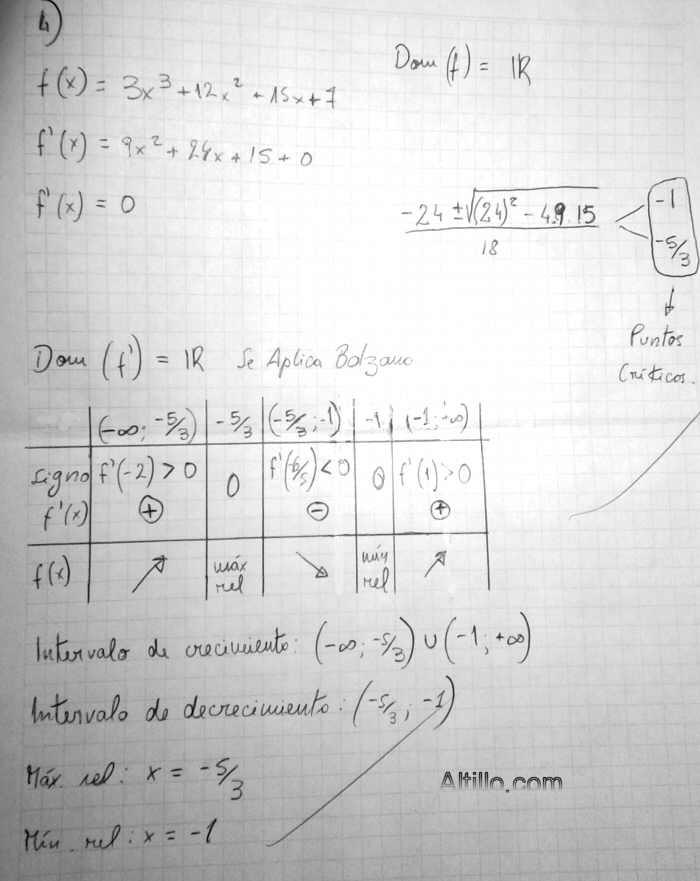 4)
Dom (f) = IR
f(x) = 3x³ + 12x² + 15x + 7
f'(x) = 9x² + 24x + 15 + 0
f'(x) = 0
-24 ± √(24)² - 4.9.15 / 18
-1
-5/3
Puntos
Críticos.
Dom (f') = IR Se Aplica Bolzano
(-∞; -5/3) -5/3 (-5/3; -1) -1 (-1; +∞)
signo f'(x) f'(-2) > 0 ⊕ 0 f'(-6/5) < 0 ⊖ 0 f'(1) > 0 ⊕
f(x) ↗ máx rel ↘ mín rel ↗
Intervalo de crecimiento: (-∞; -5/3) ∪ (-1; +∞)
Intervalo de decrecimiento: (-5/3; -1)
Máx. rel: x = -5/3
Altillo.com
Mín. rel: x = -1